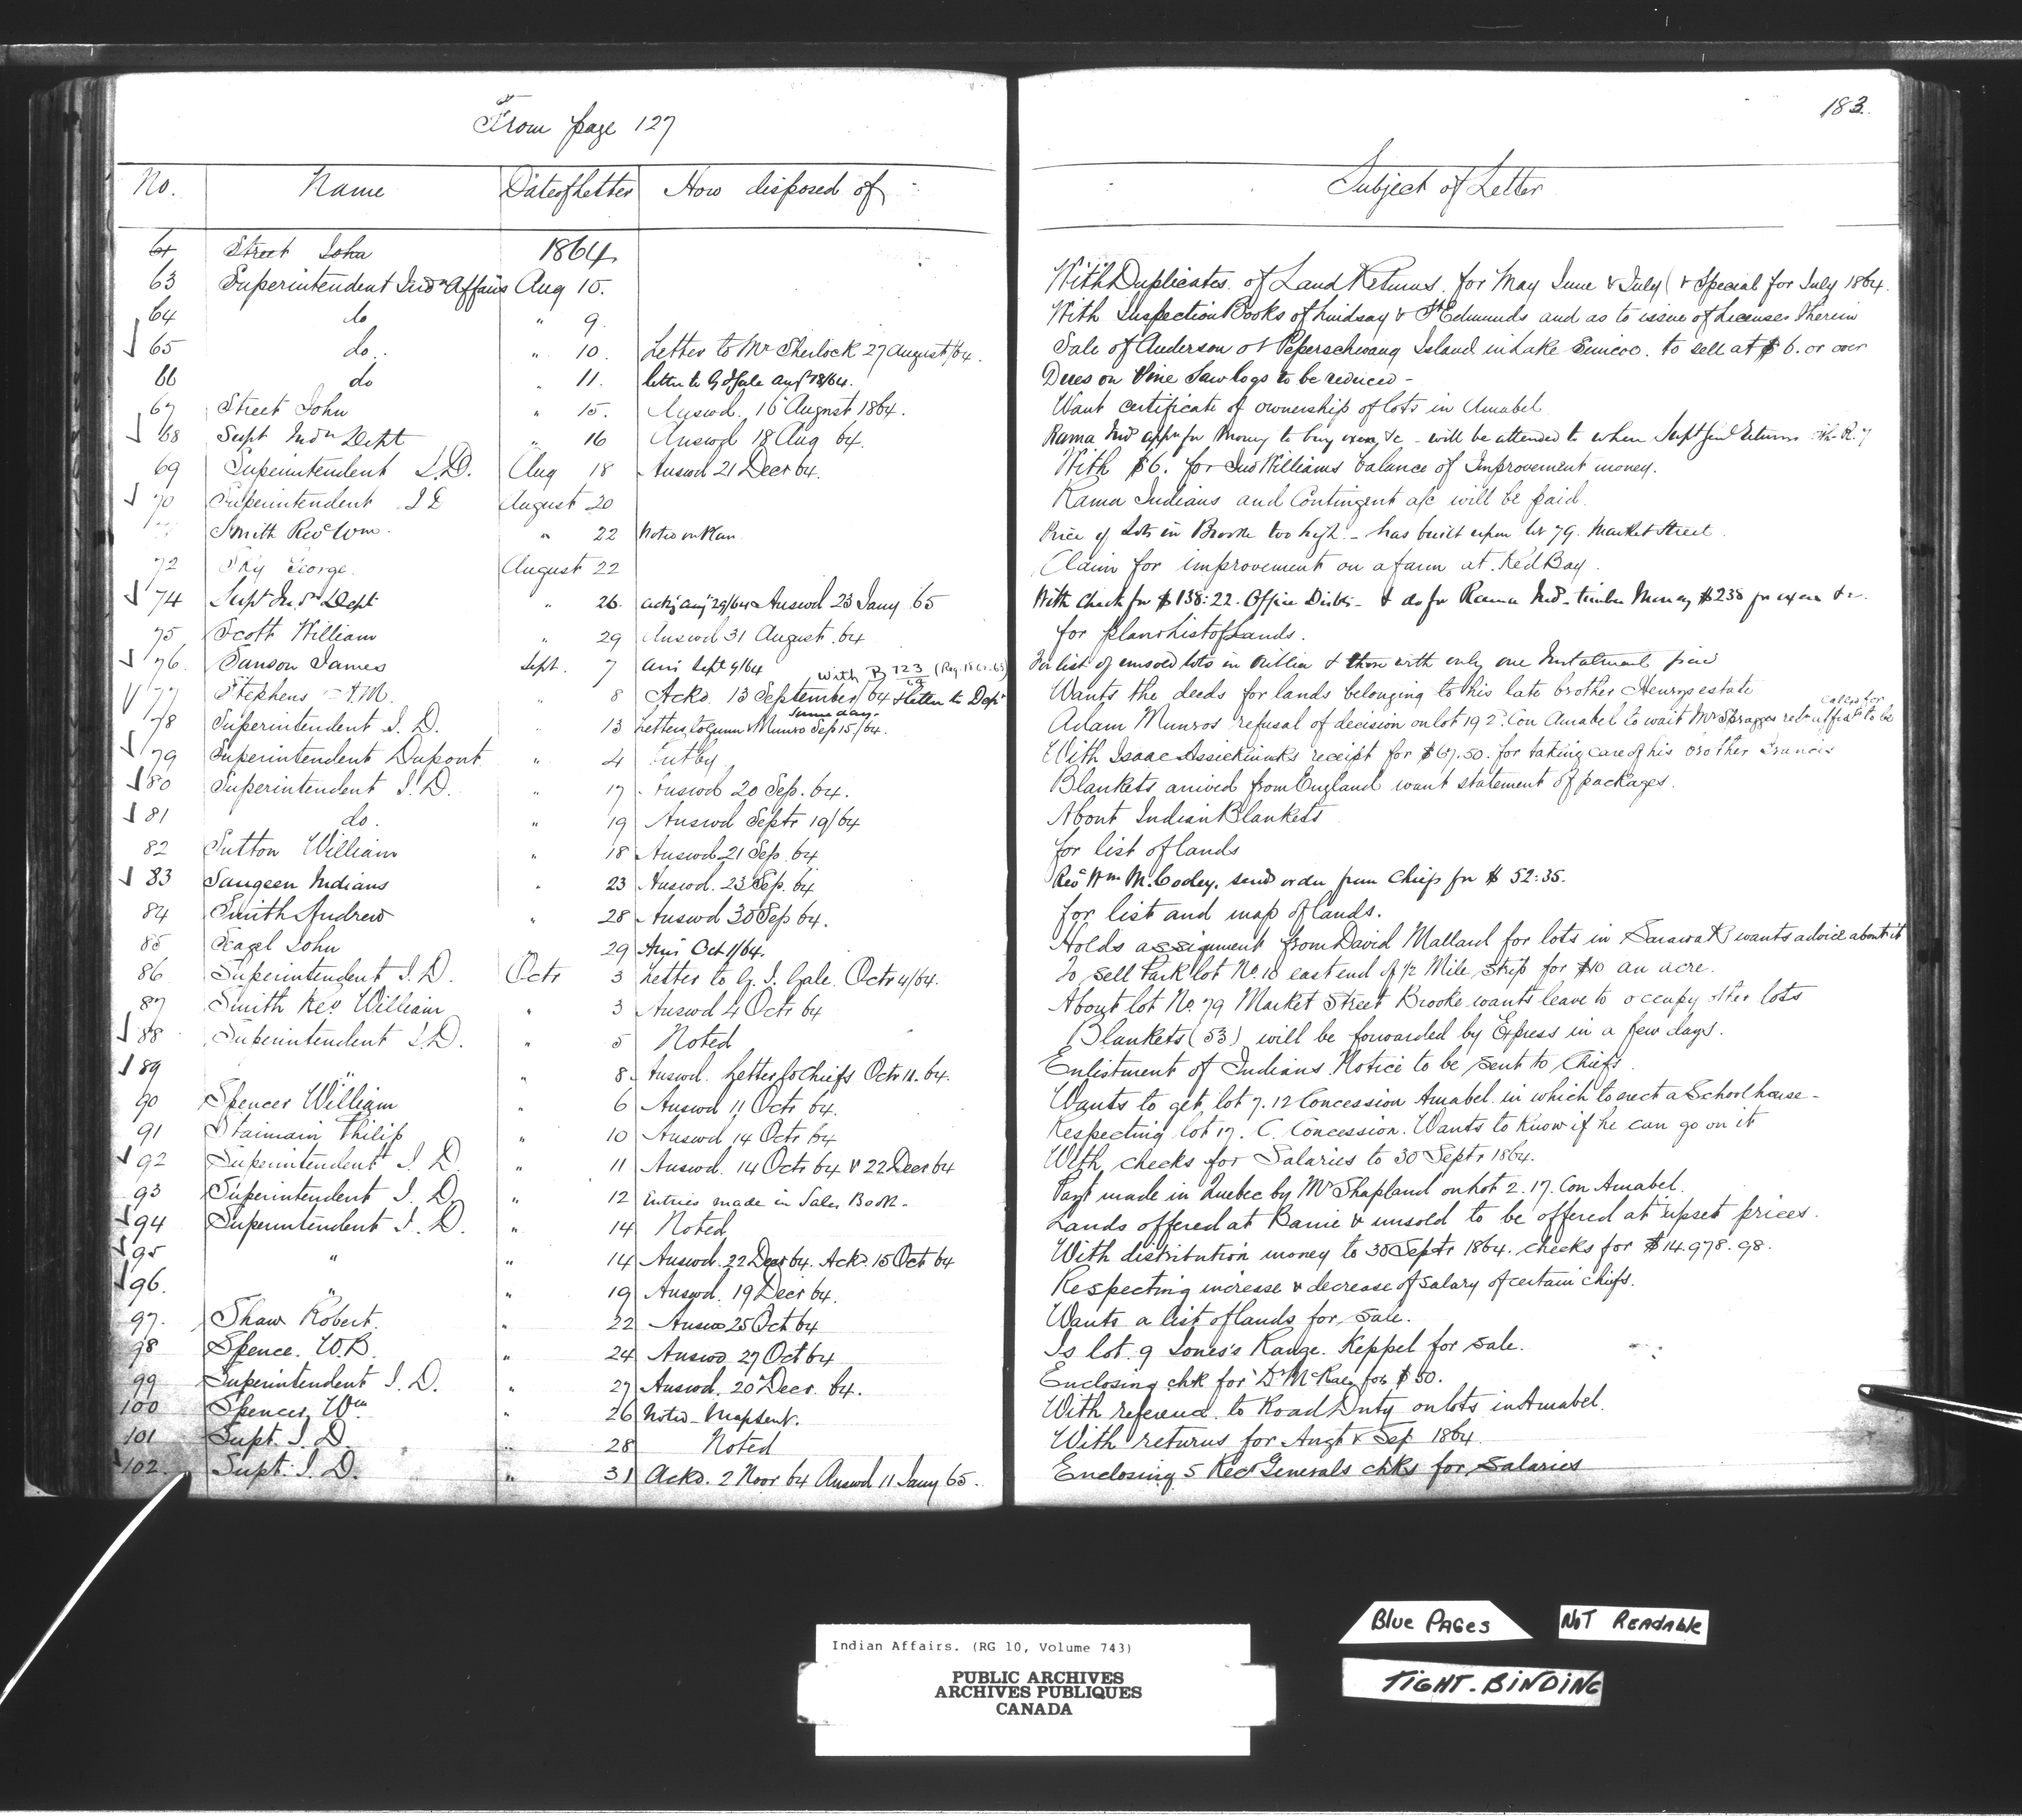 From page 127
183.
No. Name Date of Letter How disposed of Subject of Letter
61 Street John 1864
63 Superintendent Indn Affairs Aug 15. With Duplicates of Land Returns for May June & July (& Special for July 1864.
64 do " 9. With Inspection Books of Lindsay & St Edmunds and as to issue of Licenses therein
65 do. " 10. Letter to Mr Sherlock 27 August/64. Sale of Anderson or Island in Lake Simcoe. to sell at $6. or over
66 do " 11. letter to Augt 18/64. Dues on Pine Saw logs to be reduced -
67 Street John " 15. Answd. 16 August 1864. Want certificate of ownership of lots in Amabel
68 Supt Indn Dept " 16 Answd 18 Aug 64. Rama Inds appn for money to buy oxen &c - will be attended to when Supt Genl returns
69 Superintendent I.D. Aug 18 Answd 21 Decr 64. With $6. for Jno Williams balance of Improvement money.
70 Superintendent I D August 20 Rama Indians and Contingent a/c will be paid.
Smith Revd Wm " 22 Noted on Plan Price of Lots in Brooke too high. - has built upon lot 79. Market Street.
72 Sky George. August 22 Claim for improvement on a farm at Red Bay.
74 Supt Ind Dept " 26. ackd augt 29/64 Answd 23 Jany 65 With check for $138:22. Office Disbs - & do for Rama Inds - timber Money $238 for oxen &c.
75 Scott William " 29 Answd 31 August. 64 for plan & list of Lands.
76. Sanson James Sept. 7 ans Sept 9/64 For list of unsold lots in Orillia & those with only one Instalment paid
77 Stephens A M. " 8 Ackd. 13 September 64 & letter to Dept same day. with B 723/64 Wants the deeds for lands belonging to his late brother Henrys estate
78 Superintendent I. D. " 13 Letters to Gunn & Munro Sep 15/64. Adam Munros refusal of decision on lot 19 2d. Con Amabel to wait Mr Spragges to be called for
79 Superintendent Dupont " 4 With Isaac Assickinacks receipt for $67.50. for taking care of his brother Francis
80 Superintendent I. D. " 17 Answd 20 Sep. 64. Blankets arrived from England want statement of packages.
81 do. " 19 Answd Septr 19/64 About Indian Blankets
82 Sutton William " 18 Answd 21 Sep. 64 for list of lands
83 Saugeen Indians " 23 Answd. 23 Sep. 64 Revd Wm M. Cooley. sends order from Chiefs for $52:35.
84 Smith Andrew " 28 Answd 30 Sep 64. for list and map of lands.
85 John 29 Ans Oct 1/64. Holds assignment from David Mallard for lots in Sarawak wants advice about it
86 Superintendent I. D. Octr 3 Letter to G. I. Gale. Octr 4/64. To sell Park lot No. 10 east end of 1/2 Mile Strip for $10 an acre.
87 Smith Rev William " 3 Answd 4 Octr 64 About lot No. 79 Market Street Brooke wants leave to occupy other lots
88 Superintendent I.D. " 5 Noted Blankets (53) will be forwarded by Express in a few days.
89 " " 8. Answd. Letter to Chiefs Octr 11. 64. Enlistment of Indians Notice to be sent to Chiefs.
90 Spencer William " 6 Answd 11 Octr 64. Wants to get lot 7. 12 Concession Amabel in which to erect a School house -
91 Philip " 10 Answd 14 Octr 64 Respecting lot 17. C. Concession. Wants to know if he can go on it
92 Superintendent I. D. " 11 Answd. 14 Octr 64 & 22 Decr 64 With checks for Salaries to 30 Septr 1864.
93 Superintendent I. D. " 12 Entries made in Sales Book. Payt made in Quebec by Mr Shapland on Lot 2. 17. Con Amabel.
94 Superintendent I. D. " 14 Noted Lands offered at Barrie & unsold to be offered at upset prices.
95 " " 14 Answd. 22 Decr 64. Ackd. 15 Oct 64 With distribution money to 30 Septr 1864. checks for $14.978.98.
96. " " 19 Answd. 19 Decr 64. Respecting increase & decrease of salary of certain chiefs.
97. Shaw Robert. " 22 Answd 25 Oct 64 Wants a list of lands for Sale.
98 Spence. W. B. " 24 Answd 27 Oct 64 Is lot 9 Jones's Range. Keppel for sale.
99 Superintendent I. D. " 27 Answd. 20 Decr. 64. Enclosing chk for Dr McRae for $50.
100 Spencer Wm " 26 Noted - Map sent. With reference to Road Duty on lots in Amabel.
101 Supt. I. D. " 28 Noted With returns for Augt & Sep 1864
102. Supt. I. D. " 31 Ackd. 2 Novr 64 Answd 11 Jany 65. Enclosing 5 Recr Generals chks for salaries
Indian Affairs. (RG 10, Volume 743)
PUBLIC ARCHIVES
ARCHIVES PUBLIQUES
CANADA
BLUE PAGES
NOT READABLE
TIGHT-BINDING